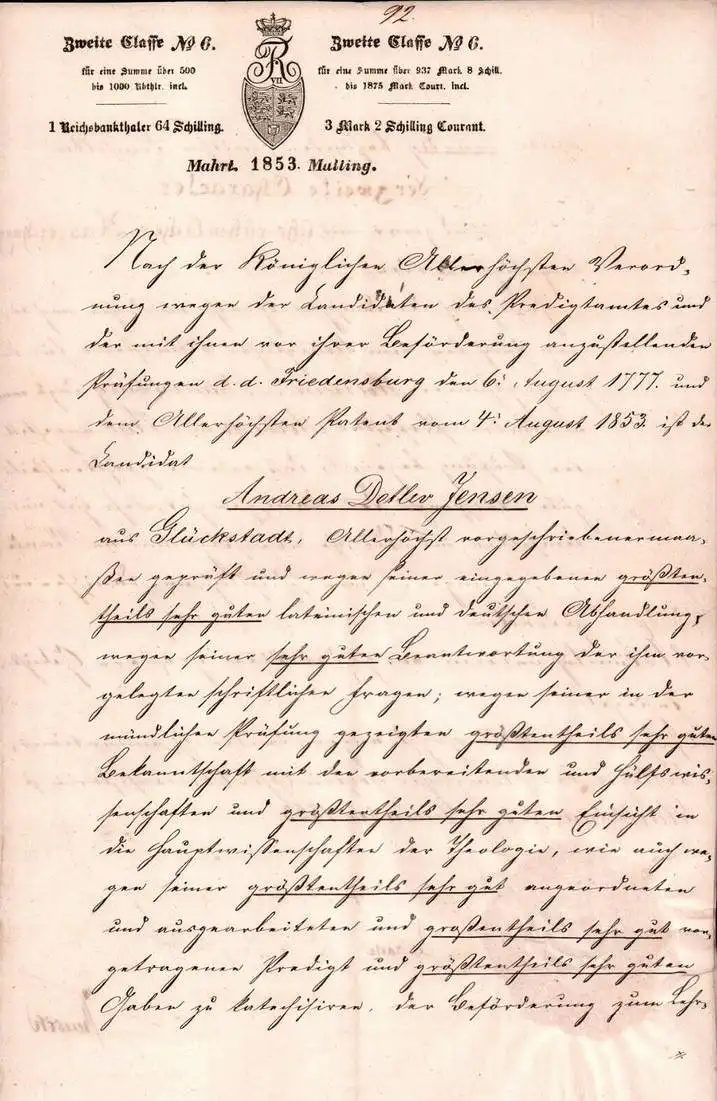 92.
Zweite Classe № 6.
für eine Summe über 500
bis 1000 Rbthlr. incl.
1 Reichsbankthaler 64 Schilling.
FR
VII
Zweite Classe № 6.
für eine Summe über 937 Mark 8 Schill.
bis 1875 Mark Cour. incl.
3 Mark 2 Schilling Courant.
Mahrt. 1853. Malling.
Nach der Königlichen Allerhöchsten Verord-
nung wegen der Candidaten des Predigtamtes und
der mit ihnen vor ihrer Beförderung anzustellenden
Prüfungen d. d. Friedensburg den 6: August 1777. und
dem Allerhöchsten Patent vom 4: August 1853. ist der
Candidat
Andreas Detlev Jensen
aus Glückstadt, Allerhöchst vorgeschriebenermaa-
ßen geprüft und wegen seiner eingegebenen größten-
theils sehr guten lateinischen und deutschen Abhandlung,
wegen seiner sehr guten Beantwortung der ihm vor-
gelegten schriftlichen Fragen; wegen seiner in der
mündlichen Prüfung gezeigten größtentheils sehr guten
Bekanntschaft mit den vorbereitenden und Hülfswis-
senschaften und größtentheils sehr guten Einsicht in
die Hauptwissenschaften der Theologie, wie auch we-
gen seiner größtentheils sehr gut angeordneten
und ausgearbeiteten und großentheils sehr gut vor-
getragenen Predigt und größtentheils sehr guten
Gaben zu katechisiren, der Beförderung zum Lehr-